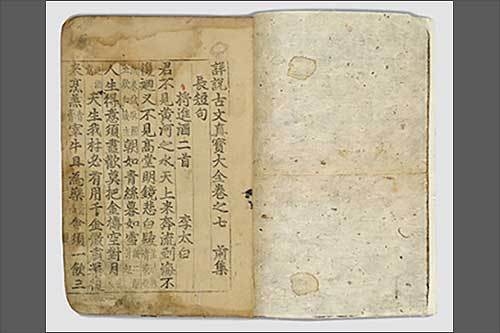 詳說古文真寶大全卷之七 前集
長短句
將進酒二首 李太白
君不見黃河之水天上來奔流到海不
復迴又不見高堂明鏡悲白髮
朝如青絲暮如雪
人生得意須盡歡莫把金樽空對月
天生我材必有用千金散盡還復
來烹羔宰牛且爲樂會須一飲三